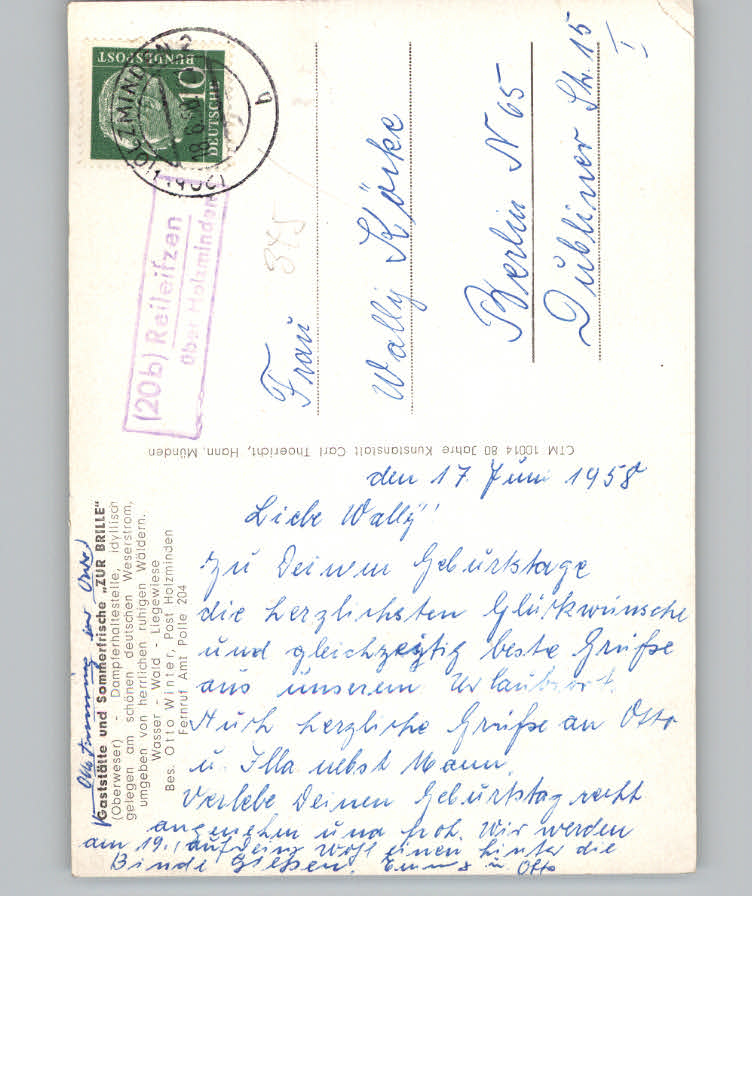 Gaststätte und Sommerfrische „ZUR BRILLE"
(Oberweser) - Dampferhaltestelle, idyllisch
gelegen am schönen deutschen Weserstrom,
umgeben von herrlichen ruhigen Wäldern.
Wasser - Wald - Liegewiese
Bes. Otto Winter, Post Holzminden
Fernruf Amt Polle 204
den 17. Juni 1958
Liebe Wally!
Zu Deinem Geburtstage
die herzlichsten Glückwünsche
und gleichzeitig beste Grüße
aus unserem Urlaubsort.
Auch herzliche Grüße an Otto
u. Illa nebst Mann.
Verlebe Deinen Geburtstag recht
angenehm und froh. Wir werden
am 19. auf Dein Wohl einen hinter die
Binde gießen. u. Otto
CTM 10014 80 Jahre Kunstanstalt Carl Thoericht, Hann. Münden
(20b) Reileifzen
über Holzminden
DEUTSCHE
BUNDESPOST
10
HOLZMINDEN 2
18.6.58
(20b)
b
375
Frau
Wally Körke
Berlin N 65
Dubliner Str. 15
I